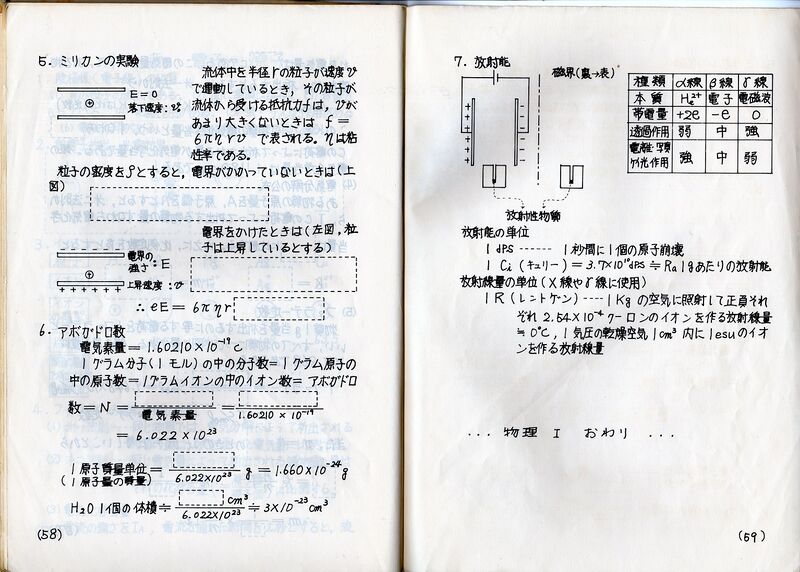 5. ミリカンの実験
流体中を半径rの粒子が速度v
で運動しているとき,その粒子が
流体から受ける抵抗力fは,vが
あまり大きくないときは f=
6πηrv で表される。ηは粘
性率である。
E=0
落下速度:v₀
粒子の密度をρとすると,電界がかかっていないときは(上
図)
電界をかけたときは(左図,粒
子は上昇しているとする)
電界の
強さ:E
上昇速度:v
+ + + + + +
∴eE=6πηr
6. アボガドロ数
電気素量=1.60210×10⁻¹⁹c
1グラム分子(1モル)の中の分子数=1グラム原子の
中の原子数=1グラムイオンの中のイオン数=アボガドロ
数=N= 電気素量 = 1.60210×10⁻¹⁹
=6.022×10²³
1原子質量単位= 6.022×10²³ g=1.660×10⁻²⁴g
(1原子量の質量)
H₂O 1個の体積≒ cm³ 6.022×10²³ ≒3×10⁻²³cm³
(58)
7. 放射能
磁界(裏→表)
放射性物質
種類 α線 β線 γ線
本質 He²⁺ 電子 電磁波
帯電量 +2e -e 0
透過作用 弱 中 強
電離・写真
ケイ光作用 強 中 弱
放射能の単位
1 dps ------ 1秒間に1個の原子崩壊
1 Ci(キュリー)=3.7×10¹⁰dps≒Ra 1gあたりの放射能
放射線量の単位(X線やγ線に使用)
1R(レントゲン)----1Kgの空気に照射して正負それ
ぞれ2.54×10⁻⁴クーロンのイオンを作る放射線量
≒0℃,1気圧の乾燥空気1cm³内に1esuのイオ
ンを作る放射線量
... 物理 I おわり ...
(59)